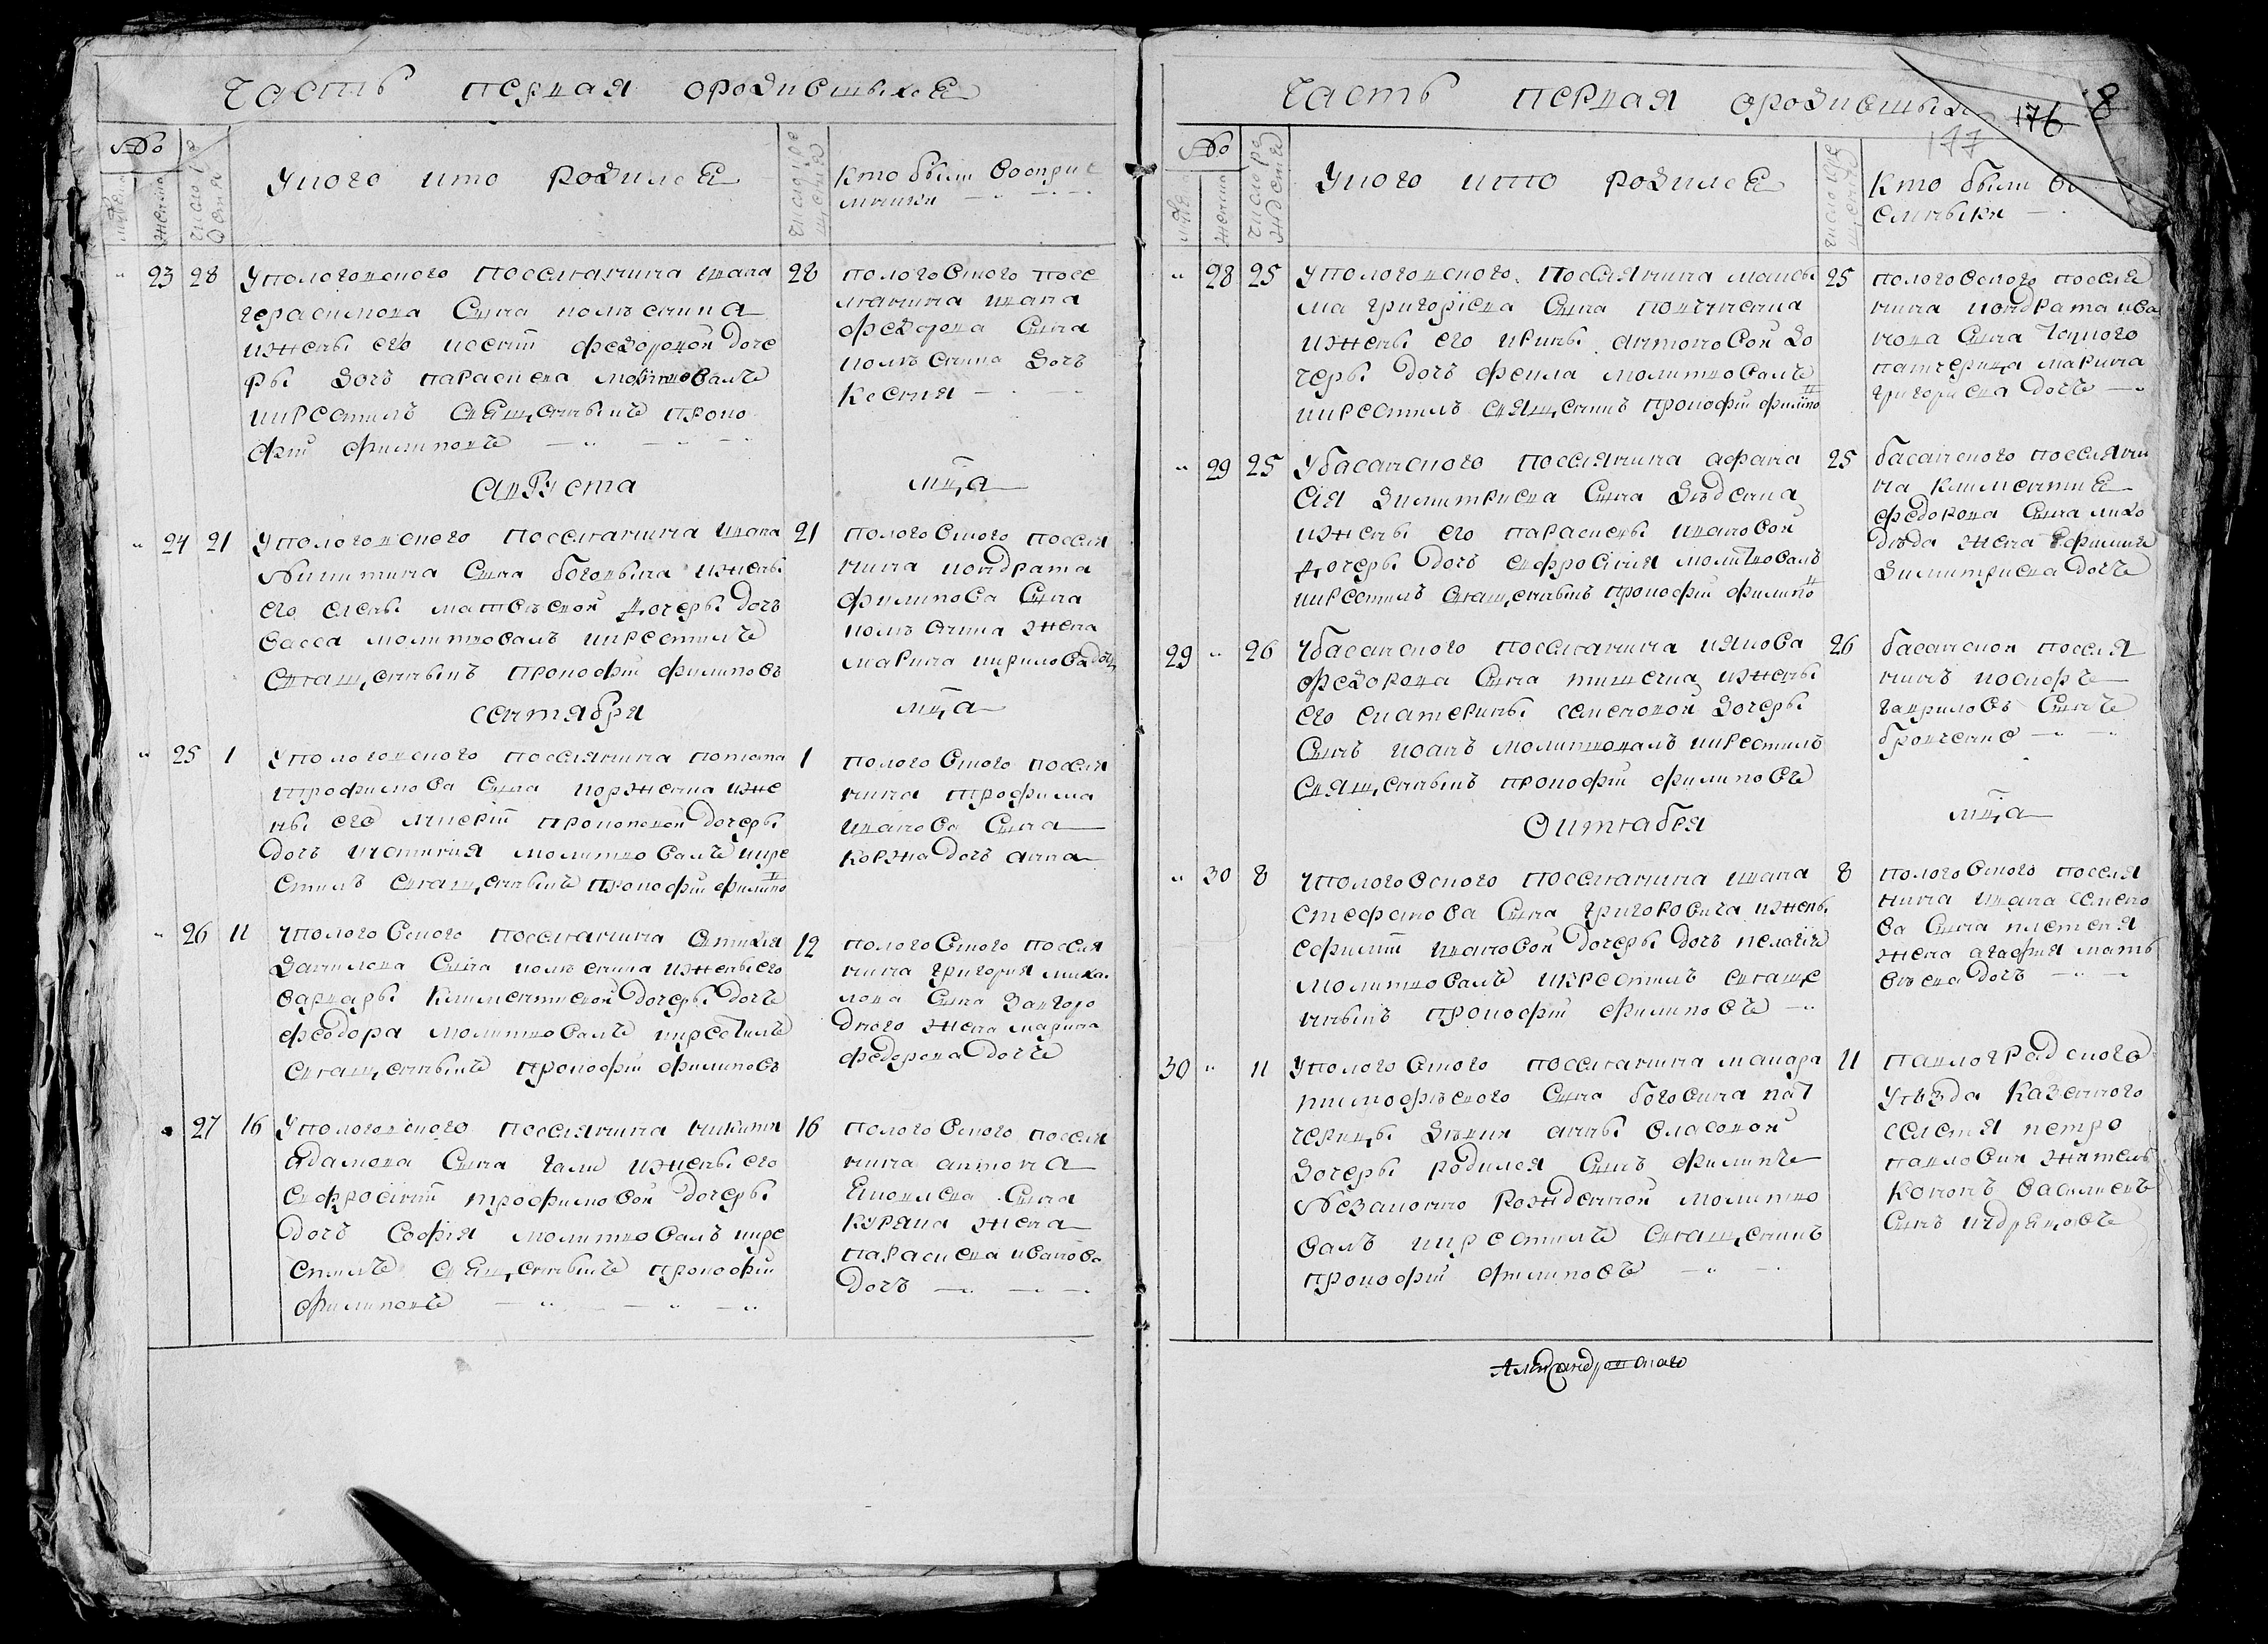 Часть первая ородившихся
№
мужеска
женска
число ро
ждения
Укого кто родился
число кре
щения
Кто были восприе
мники
23 28 Упологовского поселянина ивана 28
герасимова сына колѣсника
ижены его ксенiи федоровой доче
ры дочь параскева молитвовалъ
икрестилъ священникъ проко
фiй филиповъ
пологовского посе
лянина ивана
федорова сына
колѣсника дочь
Ксения
августа мца
24 21 Упологовского поселянина ивана 21
Никитина сына богодына ижены
его елены матвѣевой дочеры дочь
васса молитвовалъ икрестилъ
священникъ прокофiй филиповъ
пологовского поселя
нина кондрата
филипова сына
колѣсника жена
марина кирилова дочь
сентября мца
25 1 Упологовского поселянина потапа 1
трофимова сына коржена иже
ны его гликерiи прокоповой дочеры
дочь устиния молитвовалъ икре
стилъ священникъ прокофiй филипо
пологовского поселя
нина трофима
иванова сына
коржа дочь анна
26 11 Упологовского поселянина 12
данилова сына колѣсника ижены его
варвары климентиевой дочеры дочь
феодора молитвовалъ икрестилъ
священникъ прокофiй филиповъ
пологовского поселя
нина григория михаи
лова сына загоро
дного жена марина
федорова дочь
27 16 Упологовского поселянина никиты 16
адамова сына ижены его
ефросiнiи трофимовой дочеры
дочь софiя молитвовалъ икре
стилъ священникъ прокофiй
филиповъ
пологовского поселя
нина антона
сына
жена
параскева иванова
дочь
Часть первая ородившихся 176 8
177
№
женска
число ро
ждения
Укого кто родился
число кре
щения
Кто были во
емныки
28 25 Упологовского поселянина макси 25
ма григорiева сына
ижены его ирины антоновой до
черы дочь фекла молитвовалъ
икрестилъ священникъ прокофiй филипо
пологовского поселя
нина кондрата ива
нова сына
марина
григориева дочь
29 25 Убасанского поселянина афана 25
сия димитриева сына дѣдсана
ижены его параскевы ивановой
дочеры дочь ефросiния молитвовалъ
икрестилъ священникъ прокофiй филипо
басанского поселяни
на климентия
федорова сына лихо
дѣда жена ефимия
димитриева дочь
29 26 Убасанского поселянина якова 26
федорова сына ижены
его екатерины семеновой дочеры
сынъ иоанъ молитвовалъ икрестилъ
священникъ прокофiй филиповъ
басанской поселя
нинъ иосифъ
гавриловъ сынъ
Октября мца
30 8 Упологовского поселянина ивана 8
стефанова сына григоровича ижены
ефимiи ивановой дочеры дочь пелагiя
молитвовалъ икрестилъ священ
никъ прокофiй филиповъ
пологовского поселя
нина ивана семено
ва сына
жена агафия матъ
вѣева дочь
30 11 Упологовского поселянина макара 11
тимофѣевого сына
дѣвки анны власовой
дочеры родился сынъ филипъ
Незаконно рожденной молитво
валъ икрестилъ священникъ
прокофiй филиповъ
павлоградского
уѣзда казенного
селения петро
павловки житель
кононъ василиевъ
сынъ
Александровского